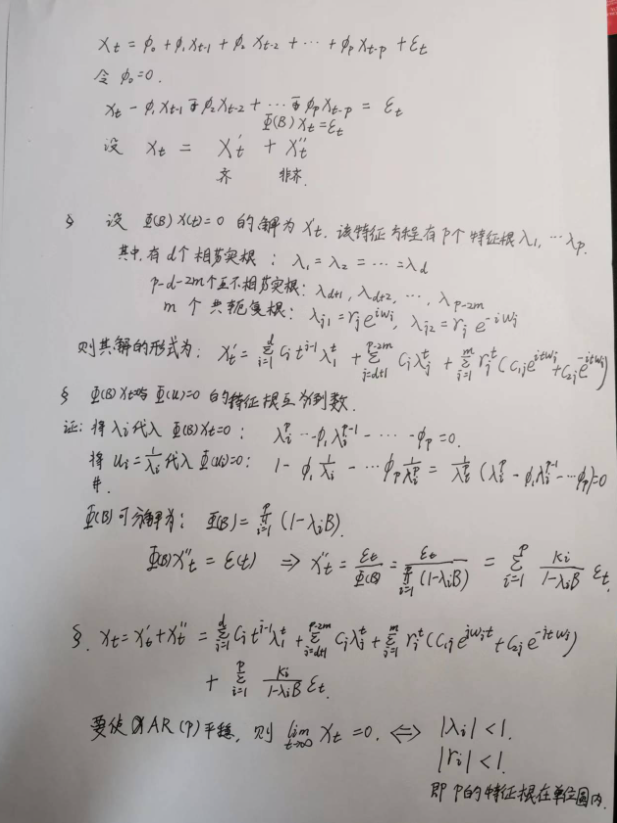 Xt = φ₀ + φ₁Xt-1 + φ₂ Xt-2 + ⋯ + φp Xt-p + εt
令 φ₀=0.
Xt - φ₁Xt-1 - φ₂Xt-2 + ⋯ - φpXt-p = εt
Φ(B)Xt=εt
设 Xt = Xt' + Xt''
齐 非齐.
§ 设 Φ(B)X(t)=0 的解为 Xt. 该特征方程有P个特征根 λ₁, ⋯λp.
其中,有d个相等实根 : λ₁ = λ₂ = ⋯ =λd
p-d-2m个互不相等实根: λd+1, λd+2, ⋯, λp-2m
m 个共轭复根: λj1 = rj e^{iwj}, λj2 = rj e^{-iwj}
则其解的形式为: Xt' = Σ_{i=1}^{d} Ci t^{i-1} λ₁^t + Σ_{j=d+1}^{p-2m} Cj λj^t + Σ_{j=1}^{m} rj^t (C1j e^{itwj} + C2j e^{-itwj})
§ Φ(B)Xt与 Φ(u)=0 的特征根互为倒数.
证: 将 λi代入 Φ(B)Xt=0 : λi^p - φ₁λi^{p-1} - ⋯ -φp =0.
将 ui = 1/λi 代入 Φ(u)=0: 1- φ₁ 1/λi - ⋯ φp 1/λi^p = 1/λi^p (λi^p - φ₁λi^{p-1} - ⋯φp)=0
#.
Φ(B)可分解为: Φ(B) = Π_{i=1}^{p} (1-λiB).
Φ(B)Xt'' = ε(t) ⇒ Xt'' = εt/Φ(B) = εt/Π_{i=1}^{p}(1-λiB) = Σ_{i=1}^{p} Ki/(1-λiB) εt.
§. Xt = Xt' + Xt'' = Σ_{i=1}^{d} Ci t^{i-1} λ₁^t + Σ_{j=d+1}^{p-2m} Cj λj^t + Σ_{j=1}^{m} rj^t (C1j e^{iwjt} + C2j e^{-itwj})
+ Σ_{i=1}^{p} Ki/(1-λiB) εt.
要使 AR(p)平稳, 则 lim_{t→∞} Xt =0. ⇔ |λi| <1.
|ri| <1.
即 P的特征根在单位圆内.